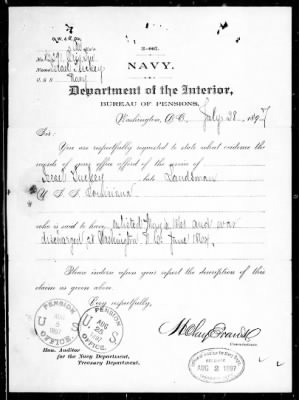 NAVY.
Department of the Interior,
BUREAU OF PENSIONS,
Washington, D. C., July 28, 1897
Sir:
You are respectfully requested to state what evidence the
records of your office afford of the service of
Israel Luckey, late Landsman
U. S. S. Louisiana
who is said to have enlisted and was
discharged at Washington June
Please indorse upon your report the description of this
claim as given above.
Very respectfully,
Commissioner.
PENSION
U S
AUG
1897
OFFICE.
PENSION
U S
AUG
OFFICE.
Hon. Auditor
for the Navy Department,
Treasury Department.
AUG 2 1897